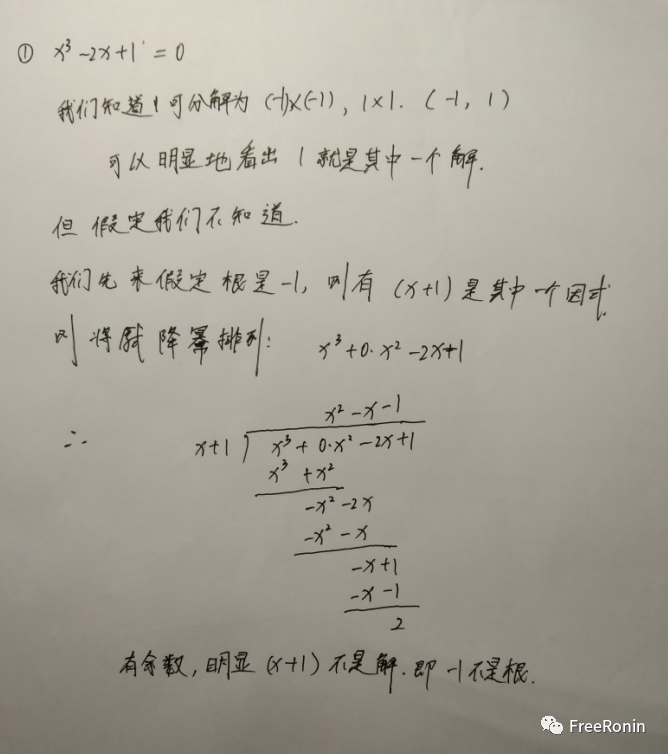 ① x³ -2x+1 = 0
我们知道1可分解为 (-1)x(-1), 1x1. (-1, 1)
可以明显地看出 1 就是其中一个解.
但 假定我们不知道.
我们先来假定根是-1, 则有 (x+1) 是其中一个因式.
则将 降幂排列: x³+0·x²-2x+1
x²-x-1
∴ x+1 ) x³+0·x²-2x+1
x³+x²
-x²-2x
-x²-x
-x+1
-x-1
2
有余数, 明显 (x+1) 不是解. 即 -1 不是根.
FreeRonin